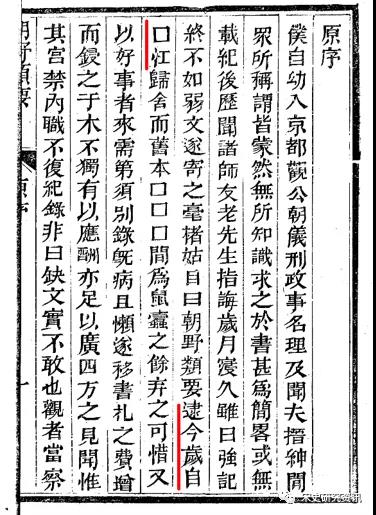 原序
僕自幼入京都觀公朝儀刑政事名理及聞夫搢紳閒
眾所稱謂皆蒙然無所知識求之於書甚爲簡畧或無
載紀後歷聞諸師友老先生指誨歲月寖久雖曰強記
終不如弱文遂寄之毫楮姑目曰朝野類要逮今歲自
囗江歸舍而舊本囗囗囗間爲鼠蠹之餘弃之可惜又
以好事者來需第須別錄旣病且懶遂移書札之費增
而鋟之于木不獨有以應酬亦足以廣四方之見聞惟
其宮禁內職不復紀錄非曰缺文實不敢也觀者當察
朝野類要 原序 一
宋史研究資訊